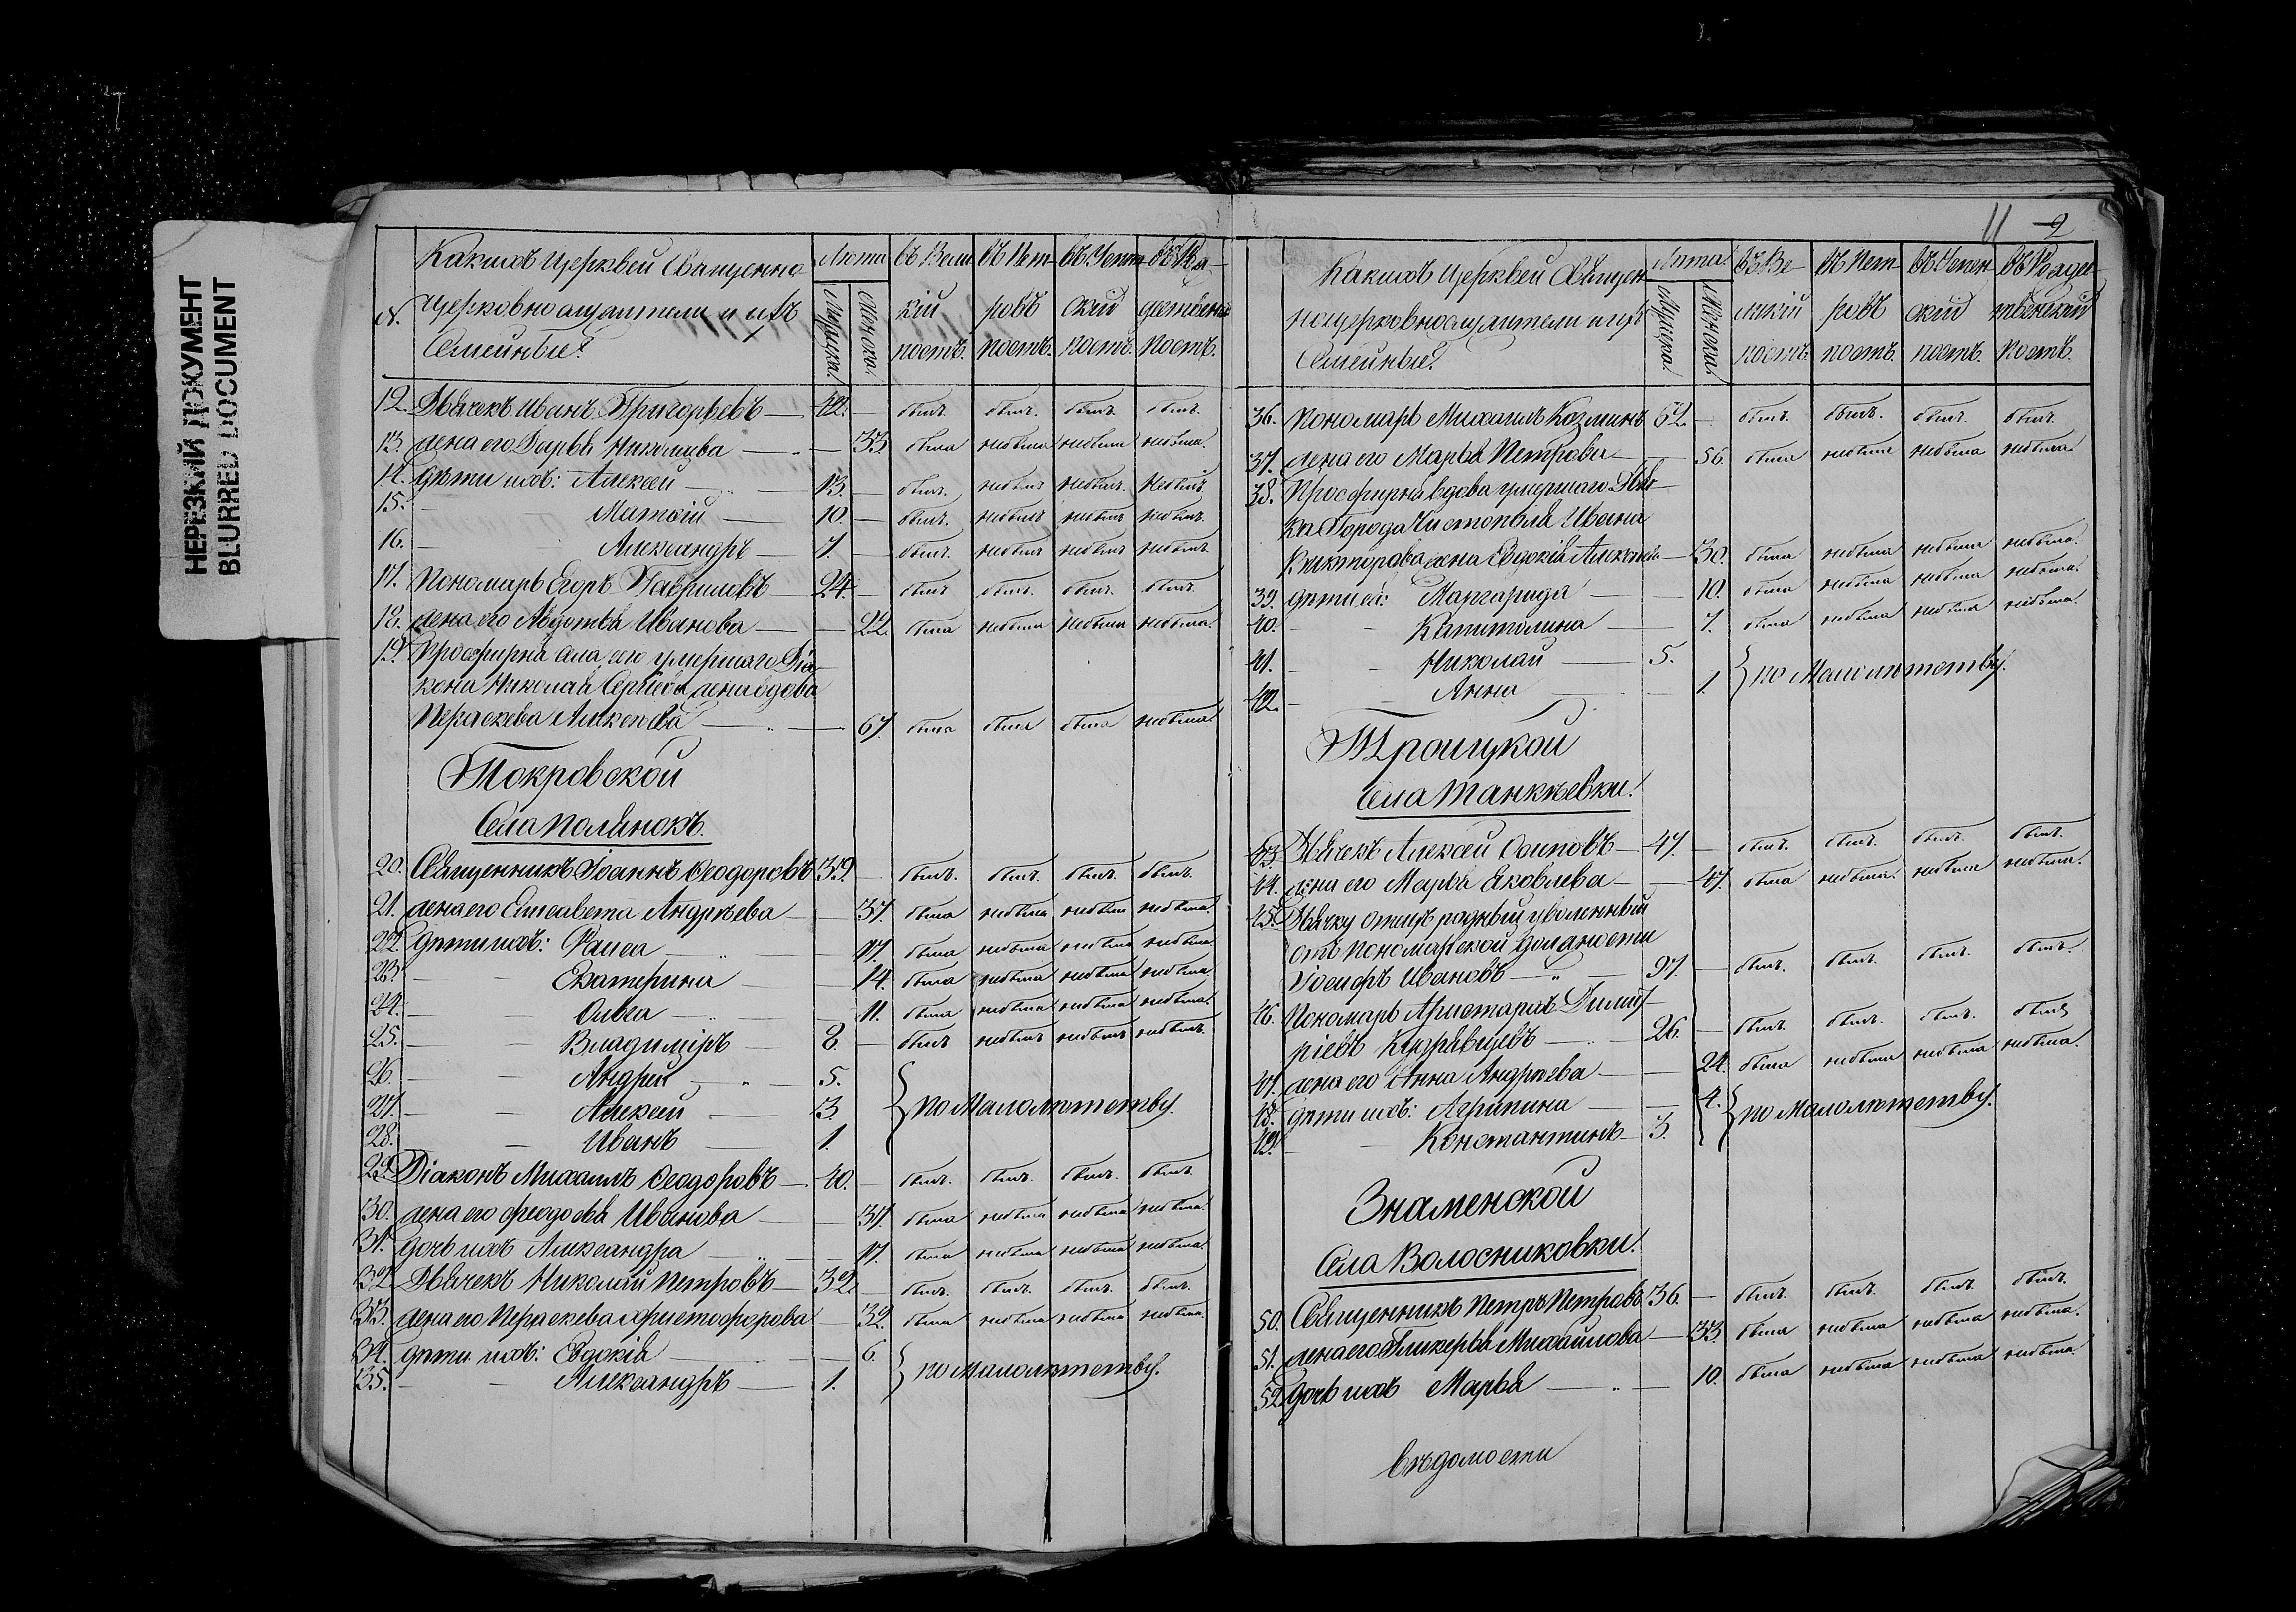 НЕРЕЗКИЙ ДОКУМЕНТ
BLURRED DOCUMENT
№.
Какихъ Церквей Священно
церковнослужители и ихъ
Семейные.
Лѣта
Мужеска.
Женска.
въ Вели
кій
постъ.
въ Пет-
ровъ
постъ.
въ Успен
скій
постъ.
въ Ро-
ждественс
постъ.
12. Дьячекъ Иванъ Григорьевъ — 42. — былъ. былъ. былъ. былъ.
13. жена его Дарья Николаева — 33 была небыла небыла небыла.
14. дѣти ихъ: Алексей — 13. — былъ. небылъ небылъ. небылъ.
15. — Матвей — 10. — былъ. небылъ небылъ небылъ.
16. — Александръ — 7. — былъ. небылъ небылъ небылъ.
17. Пономарь Егоръ Гавриловъ — 24. — былъ былъ. былъ. былъ.
18. жена его Авдотья Иванова — 22. была небыла небыла небыла.
19. Просфирня села сего умершаго Діа-
кона Николая Сергѣева жена вдова
Пераскева Алексѣева — 67. была была была небыла.
Покровской
Села Полянокъ.
20. Священникъ Іоаннъ Ѳеодоровъ 39. — былъ. былъ. былъ. былъ.
21. жена его Елисавета Андрѣева — 37. была небыла небыла небыла.
22. дѣти ихъ: Раиса — 17. была небыла небыла небыла.
23. — Екатерина — 14. была небыла небыла небыла.
24. — Ольга — 11. была небыла небыла небыла.
25. — Владиміръ — 8. — былъ небылъ небылъ небылъ.
26. — Андрей — 5.
27. — Алексей — 3. } по Малолѣтству.
28. — Иванъ — 1.
29. Діаконъ Михаилъ Ѳеодоровъ — 40. — былъ. былъ. былъ. былъ.
30. жена его Феодосья Иванова — 37. была небыла небыла небыла.
31. дочь ихъ Александра — 17. была небыла небыла небыла.
32. Дьячекъ Николай Петровъ — 32. — былъ. былъ. былъ. былъ.
33. жена его Пераскева Христофорова — 32. была небыла небыла небыла.
34. дѣти ихъ: Евдокія — 6. } по Малолѣтству.
35. — Александръ — 1.
11 2
Какихъ Церквей Священ
ноцерковнослужители и ихъ
Семейные.
Лѣта.
Мужеска.
Женска.
въ Ве-
ликій
постъ.
въ Пет-
ровъ
постъ.
въ Успен
скій
постъ.
въ Рождес-
твенскій
постъ.
36. Пономарь Михаилъ Козминъ 62. — былъ. былъ. былъ. былъ.
37. жена его Марья Петрова — 56. была небыла небыла небыла.
38. Просфирня вдова умершаго Дья-
ка Города Чистополя Ивана
Викторова жена Евдокія Алексѣева — 30. была небыла небыла небыла.
39. дѣти ея: Маргарида — 10. была небыла небыла небыла.
40. — Капитолина — 7. была небыла небыла небыла.
41. — Николай — 5.
42. — Анна — 1. } по Малолѣтству.
Троицкой
Села Танкѣевки.
43. Дьячекъ Алексей Осиповъ — 47. — былъ. былъ. былъ. былъ.
44. жена его Марья Яковлева — 47. была небыла. небыла небыла.
45. Дьячку отецъ родный уволенный
отъ пономарской должности
Іосифъ Ивановъ — 97. — былъ. былъ. былъ. былъ.
46. Пономарь Аристархъ Димит-
ріевъ Кудрявцевъ — 26. — былъ. былъ. былъ. былъ
47. жена его Анна Андрѣева — 24. была небыла небыла небыла.
48. дѣти ихъ: Агрипина — 4. } по Малолѣтству.
49. — Константинъ — 3.
Знаменской
Села Волосниковки.
50. Священникъ Петръ Петровъ 36. — былъ. былъ. былъ. былъ.
51. жена его Гликерья Михайлова — 33. была небыла небыла небыла.
52. дочь ихъ Марья — 10. была небыла небыла небыла.
Вѣдомости